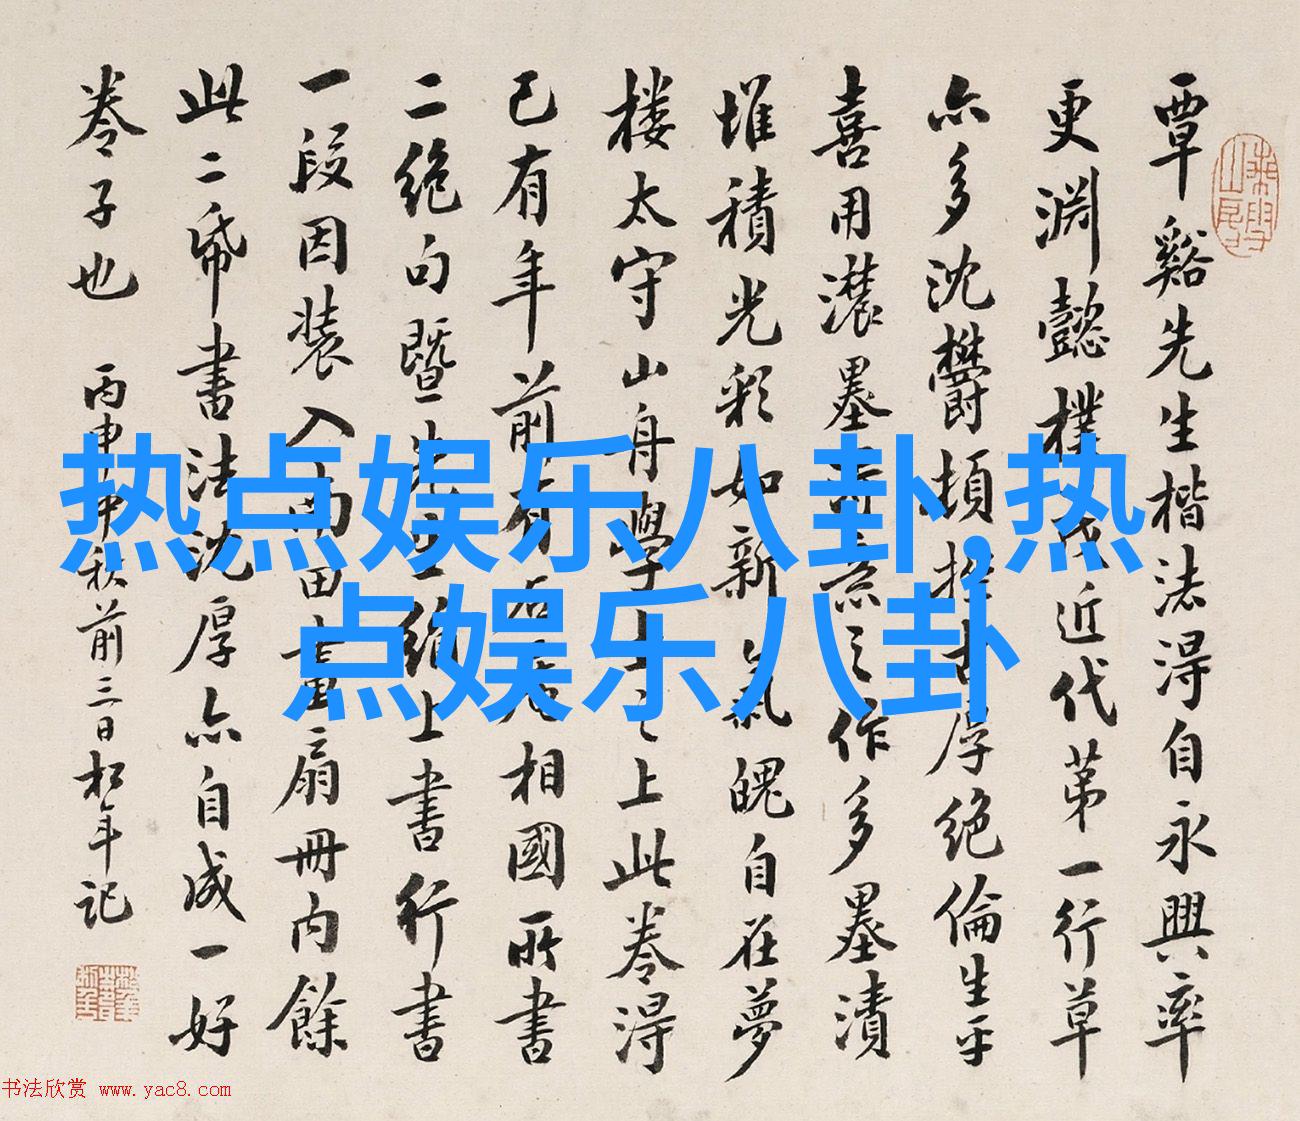 覃谿先生楷法淂自永興率
更渊懿樸茂近代苐一行草
亦多沈欝頓挫古厚绝倫生平
喜用濃墨之作多墨漬
堆積光彩如新氣魄自在夢
楼太守山舟學士之上此卷淂
已有年前有相國所書
二绝句暨上書行書
一段因装入扇冊内餘
此二帋書法沈厚亦自成一好
卷子也
丙申中秋前三日松年記
热点娱乐八卦,热
点娱乐八卦
书法欣赏 www.yac8.com